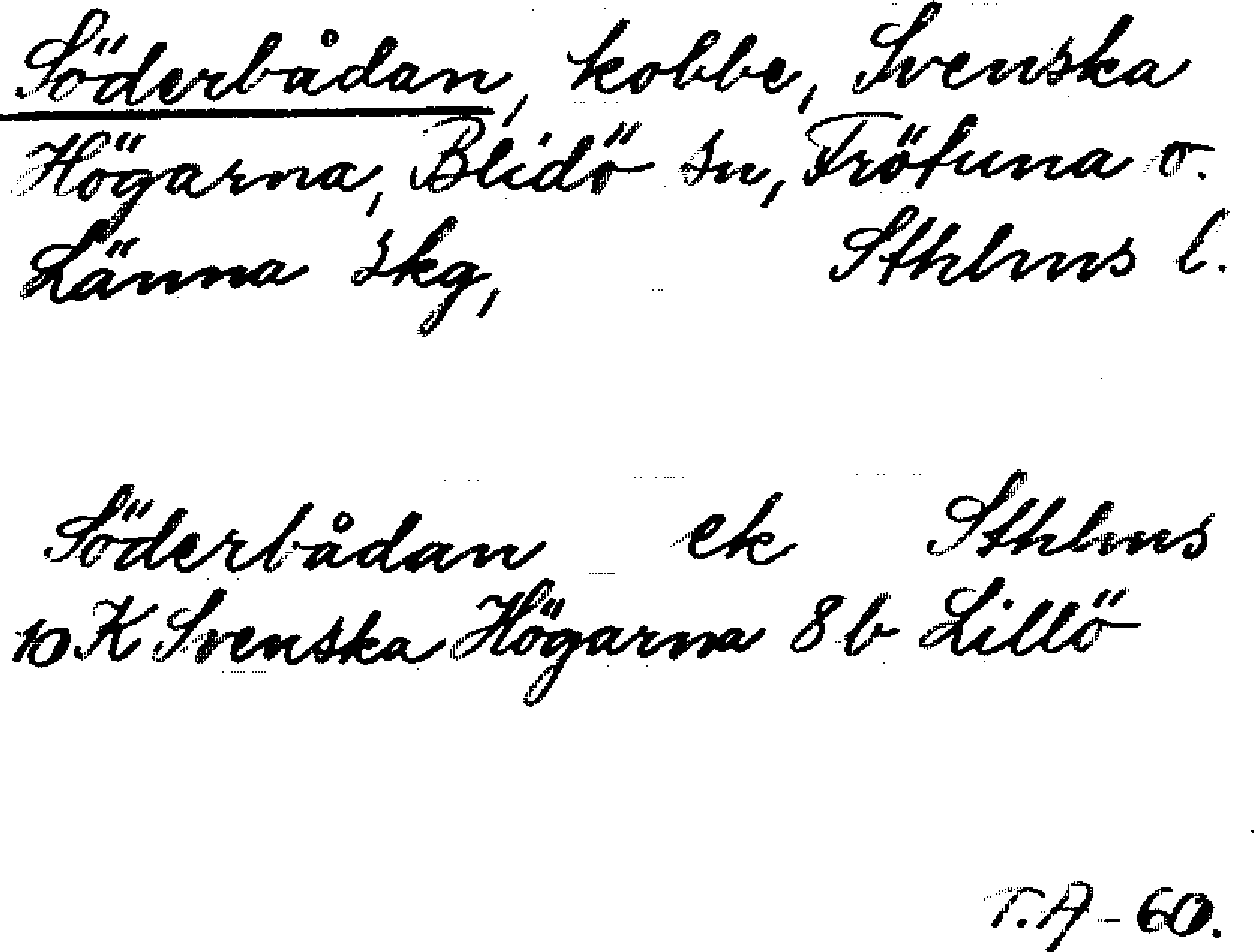 Söderbådan, kobbe, Svenska
Högarna, Blidö sn, Frötuna o.
Länna skg, Sthlms l.
Söderbådan ek Sthlms
10 K Svenska Högarna 8 b Lillö
T.A-60.